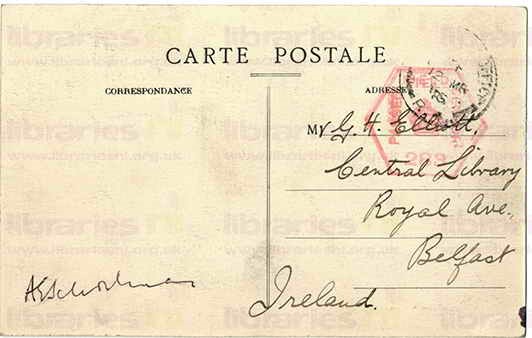 CARTE POSTALE
CORRESPONDANCE
ADRESSE
Mr G. H. Elliott,
Central Library
Royal Ave.
Belfast
Ireland.
libraries NI
www.librariesni.org.uk